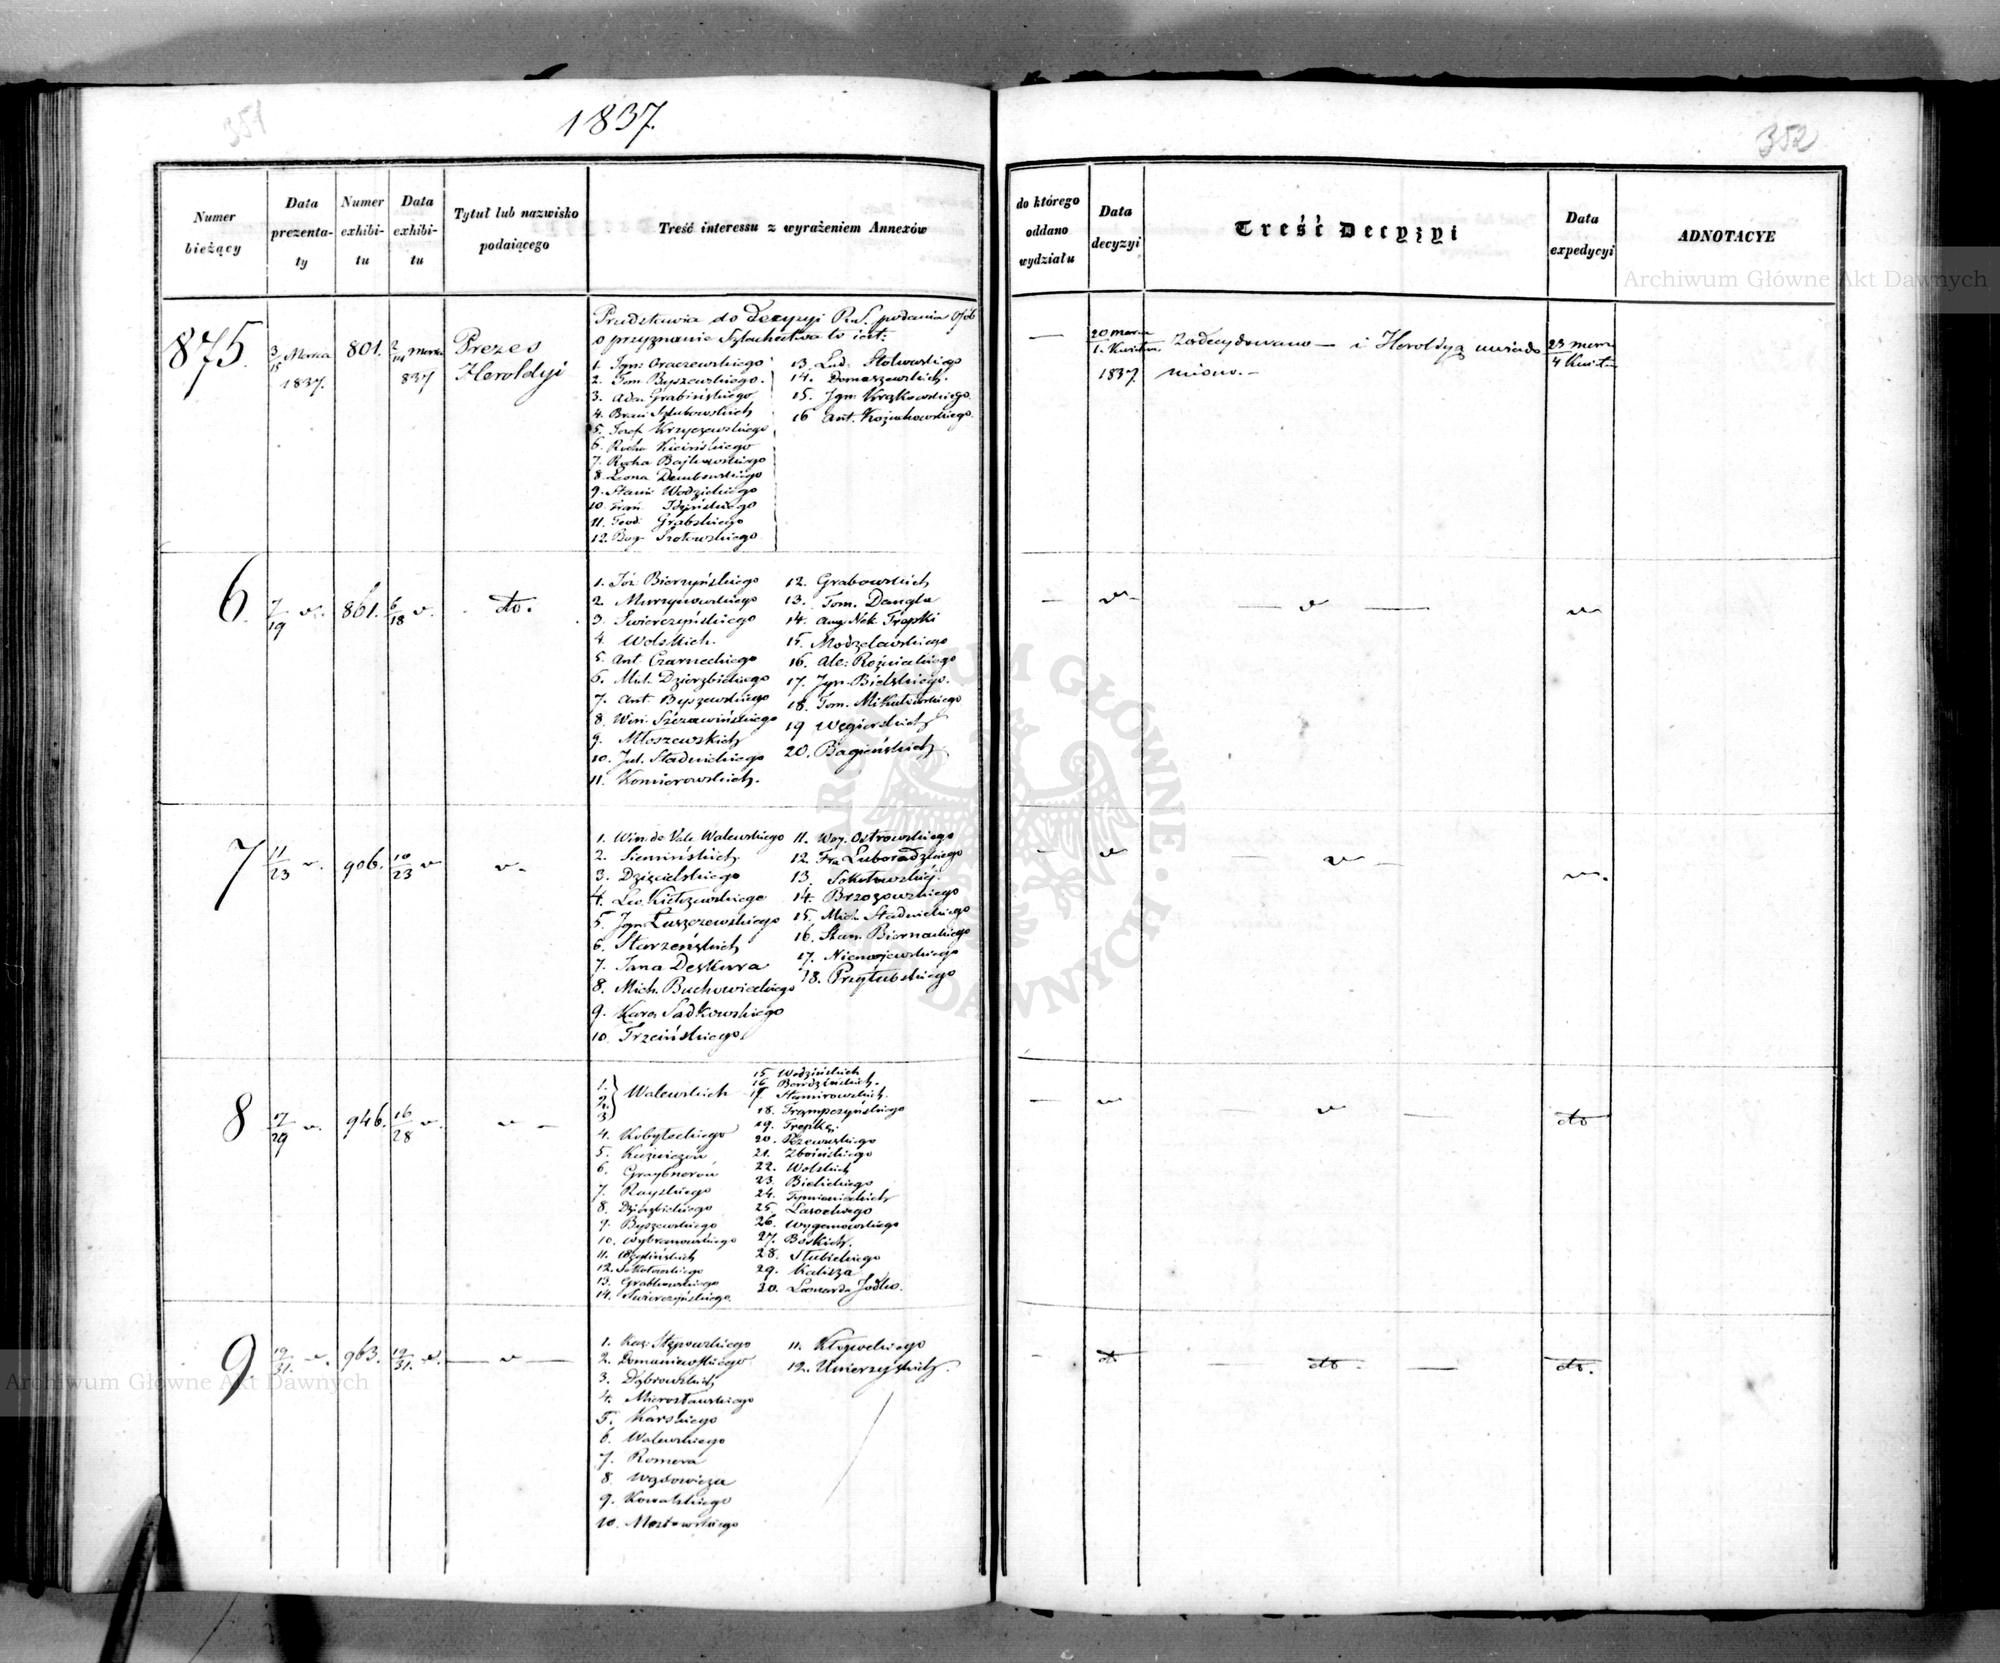 351
1837.
352
Numer bieżący
Data prezenta-ty
Numer exhibi-tu
Data exhibi-tu
Tytuł lub nazwisko podaiącego
Treść interessu z wyrażeniem Annexów
do którego oddano wydziału
Data decyzyi
Treść Decyzyi
Data expedycyi
ADNOTACYE
875.
3/15 Marca 1837.
801.
2/14 Marca 837
Prezes Heroldyi
Przedstawia do decyzyi R.S. podania Osób
o przyznanie Szlachectwa to iest:
1. Ign. Oraczewskiego
2. Tom. Byszewskiego.
3. Ada. Grabińskiego
4. Braci Szlubowskich
5. Józef. Krzyczewskiego
6. Rocha Kicińskiego
7. Rocha Bajkowskiego
8. Leona Dembowskiego
9. Stani. Wodzickiego
10. Fran.
11. Teod. Grabskiego
12. Bog.
13. Lud.
14. Domaszewskich.
15. Ign. Krąkowskiego
16 Ant. Kożuchowskiego.
—
20 marca
1. Kwietnia
1837.
Zadecydowano — i Heroldyą uwiado
miono. —
23 marca
4 Kwiet
6.
7/19 v.
861.
6/18 v.
do.
1. Józ. Bierzyńskiego
2. Murzynowskiego
3. Swierczyńskiego
4. Wolskich.
5. Ant. Czarneckiego
6. Mel. Dzierzbickiego
7. Ant. Byszewskiego
8. Win. Szczawińskiego
9. Młoszewskich
10. Jul. Stadnickiego
11. Komierowskich.
12. Grabowskich
13. Tom. Dangla
14. Aug. Nek. Trepki
15. Modzelewskiego
16. Ale. Rożnieckiego
17. Ign. Bielskiego.
18. Tom. Mikułowskiego
19 Węgierskich
20. Bagieńskich.
— v — — v — v
7
11/23 v.
906.
10/23 v
v.
1. Win. de Val. Walewskiego
2. Siemińskich
3. Dzięcielskiego
4. Leo. Kiełczewskiego
5. Ign. Łuszczewskiego
6. Starzeńskich
7. Jana Deskura
8. Mich. Buchowieckiego
9. Karo. Sadkowskiego
10. Trzcińskiego.
11. Woy. Ostrowskiego
12. Fra. Luboradzkiego
13. Sokołowskiej.
14. Brzozowskiego
15. Mich. Stadnickiego
16. Stan. Biernackiego
17. Niemojewskiego
18. Przyłubskiego
— v — v — v.
8
17/29 v.
946.
16/28 v.
v —
1.
2.
3. Walewskich
4. Kobyłeckiego
5. Kuźniczów
6. Graybnerów
7. Rayskiego
8. Dzierzbickiego
9. Byszewskiego
10. Wybranowskiego
11.
12. Sokołowskiego
13. Grabkowskiego
14. Swierczyńskiego.
15 Wodzińskich
16
17. Słamirowskich.
18. Trąmpczyńskiego
19. Trepki
20.
21. Zboińskiego
22. Wolskich
23. Bielickiego
24. Tymienieckich
25. Lasockiego
26. Wyganowskiego
27. Boskich.
28. Słubickiego
29. Kalisza
30. Leonarda Jodko.
— v v — do
9.
19/31. v.
963.
19/31. v.
— v —
1. Kaz. Stępowskiego
2. Domaniewskiego
3. Dąbrowskich
4. Mierosławskiego
5. Karskiego
6. Walewskiego
7. Romera
8.
9. Kowalskiego
10. Mostowskiego
11.
12. Umierzyskich.
— do — do. — do.
Archiwum Główne Akt Dawnych
Archiwum Główne Akt Dawnych
ARCHIWUM GŁÓWNE AKT DAWNYCH